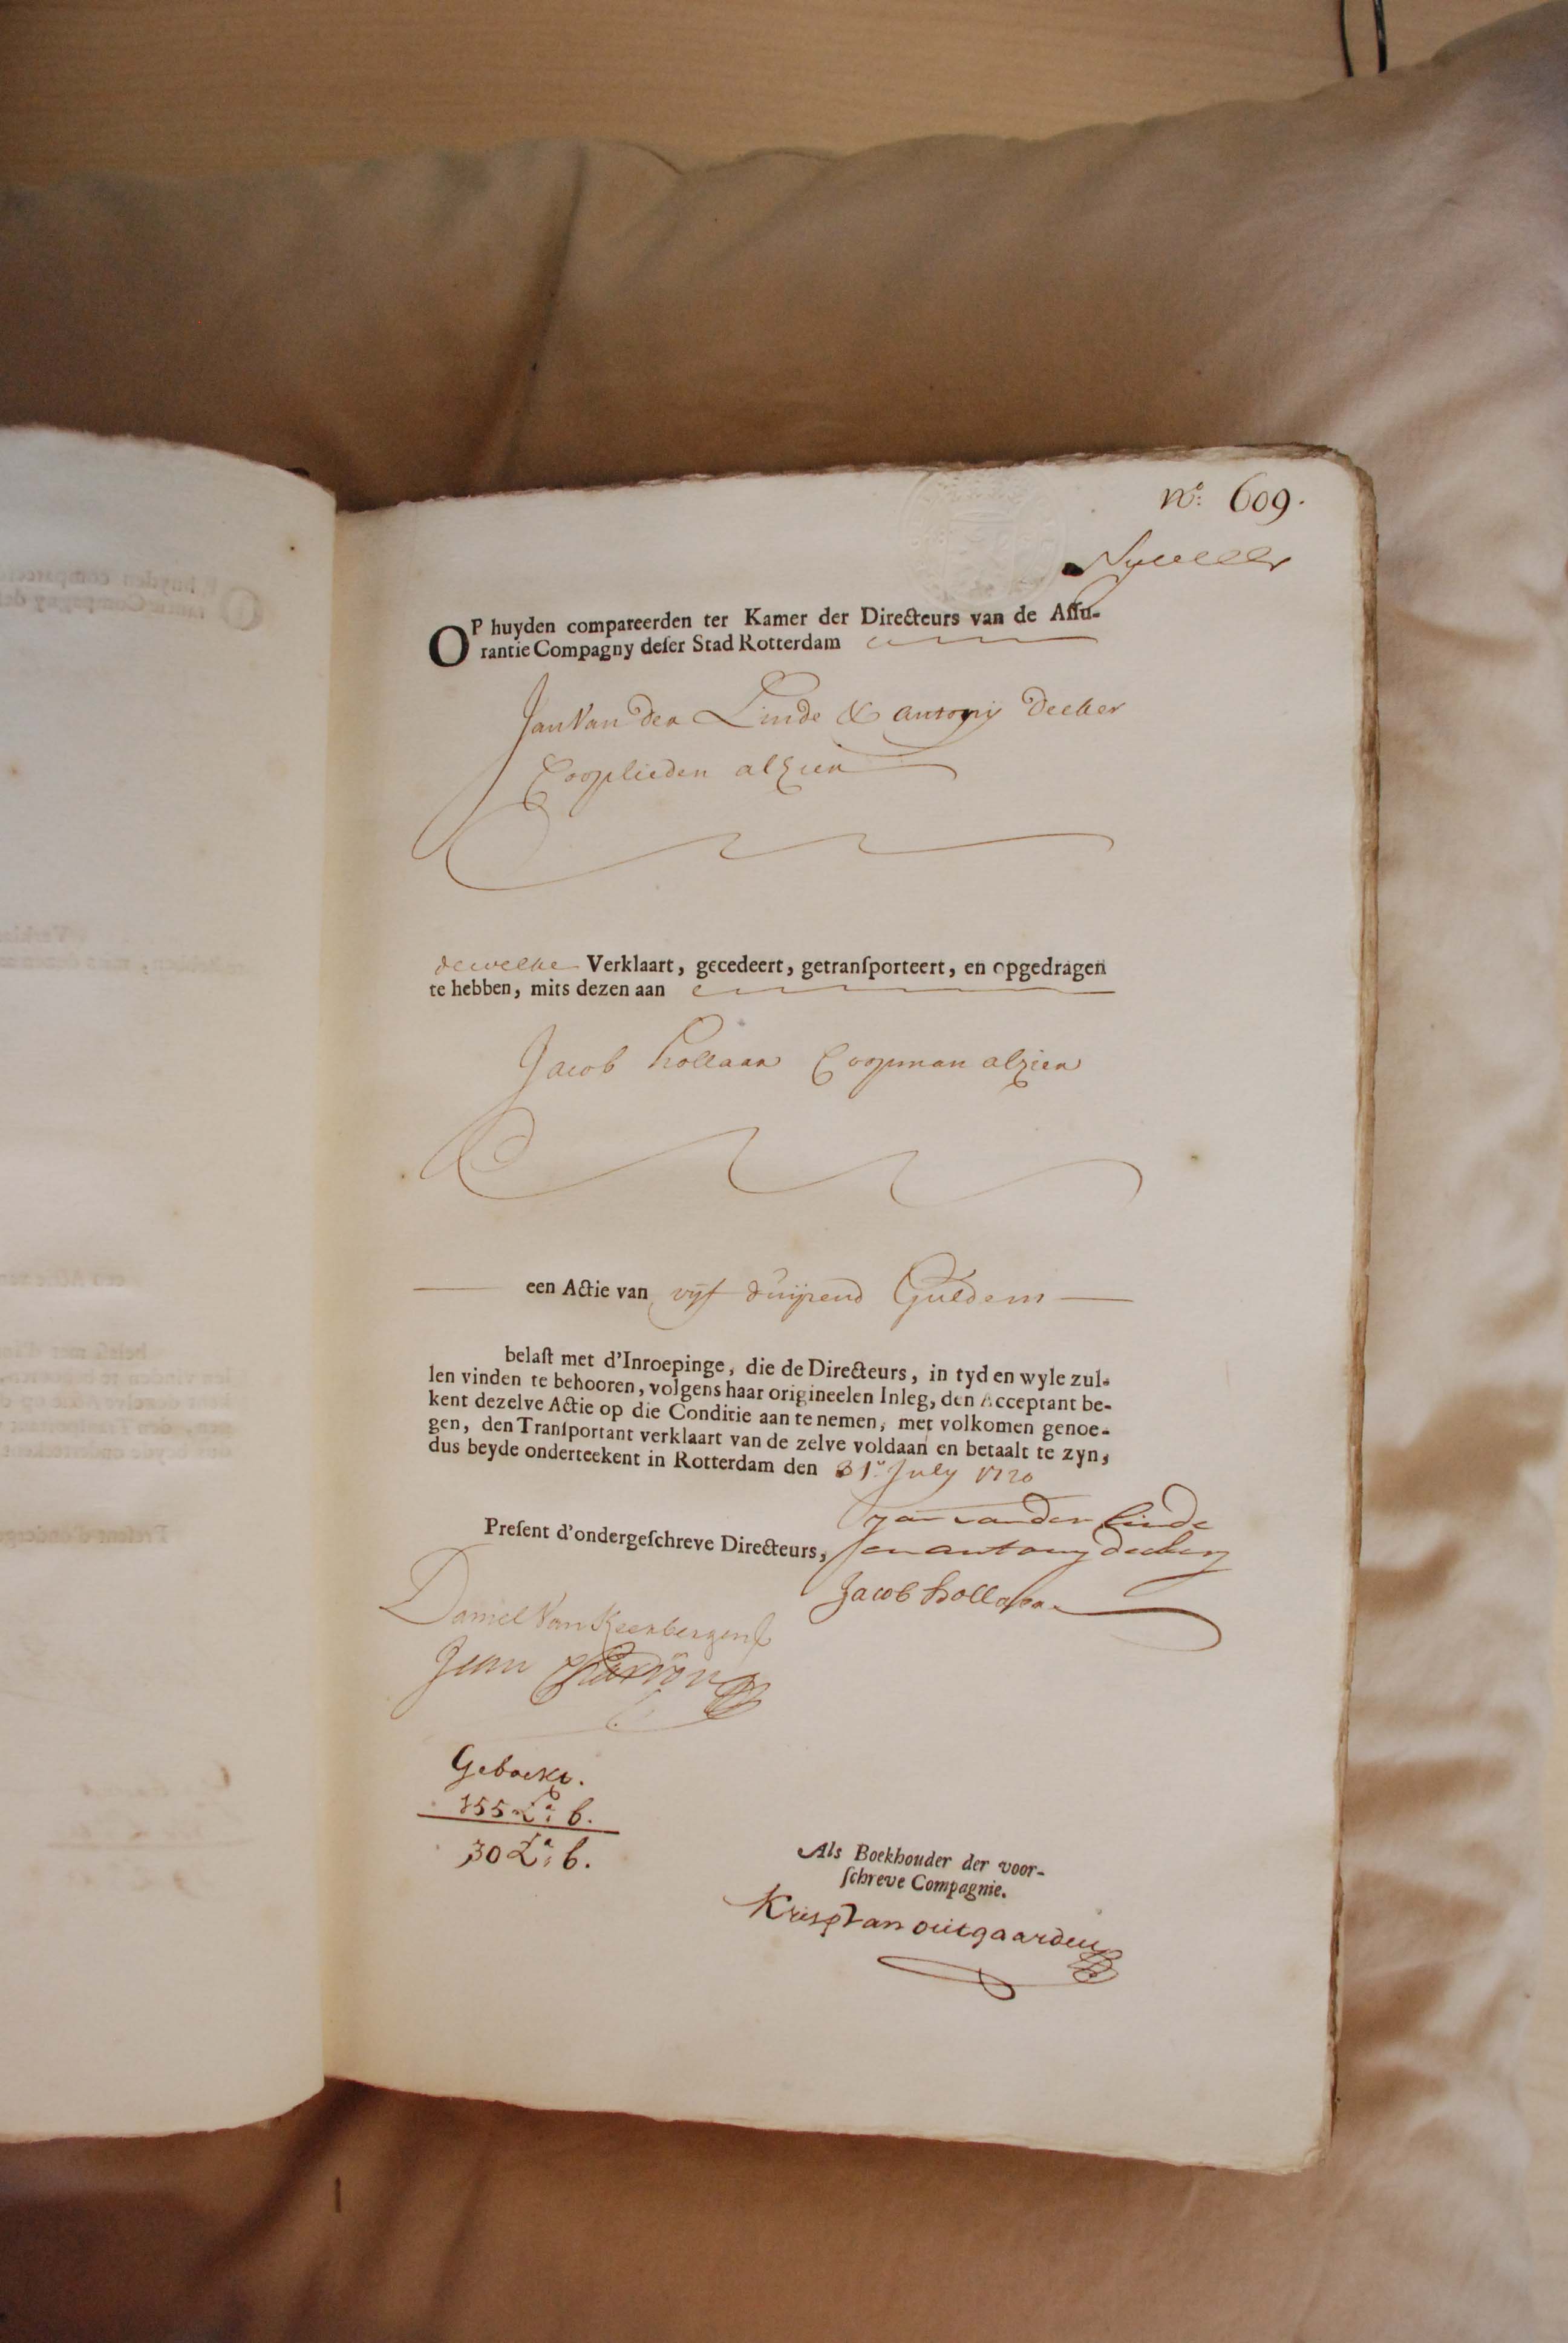 n.o 609.
OP huyden compareerden ter Kamer der Directeurs van de Aſſu-
rantie Compagny deſer Stad Rotterdam
Jan Van der Linde & antonij Decker
Cooplieden alhier
dewelke Verklaart, gecedeert, getranſporteert, en opgedragen
te hebben, mits dezen aan
Jacob hollaar Coopman alhier
een Actie van vijf duijsend Guldens
belaſt met d'Inroepinge, die de Directeurs, in tyd en wyle zul-
len vinden te behooren, volgens haar origineelen Inleg, den Acceptant be-
kent dezelve Actie op die Conditie aan te nemen, met volkomen genoe-
gen, den Tranſportant verklaart van de zelve voldaan en betaalt te zyn,
dus beyde onderteekent in Rotterdam den 31 July 1720
Preſent d'ondergeſchreve Directeurs,
Jan van der Linde
en antony decker
Jacob hollaar
Daniel Van Keerbergen
Jean
Geboekt.
155 La: b.
30 La: b.
Als Boekhouder der voor-
ſchreve Compagnie.
Krisp Van outgaarden